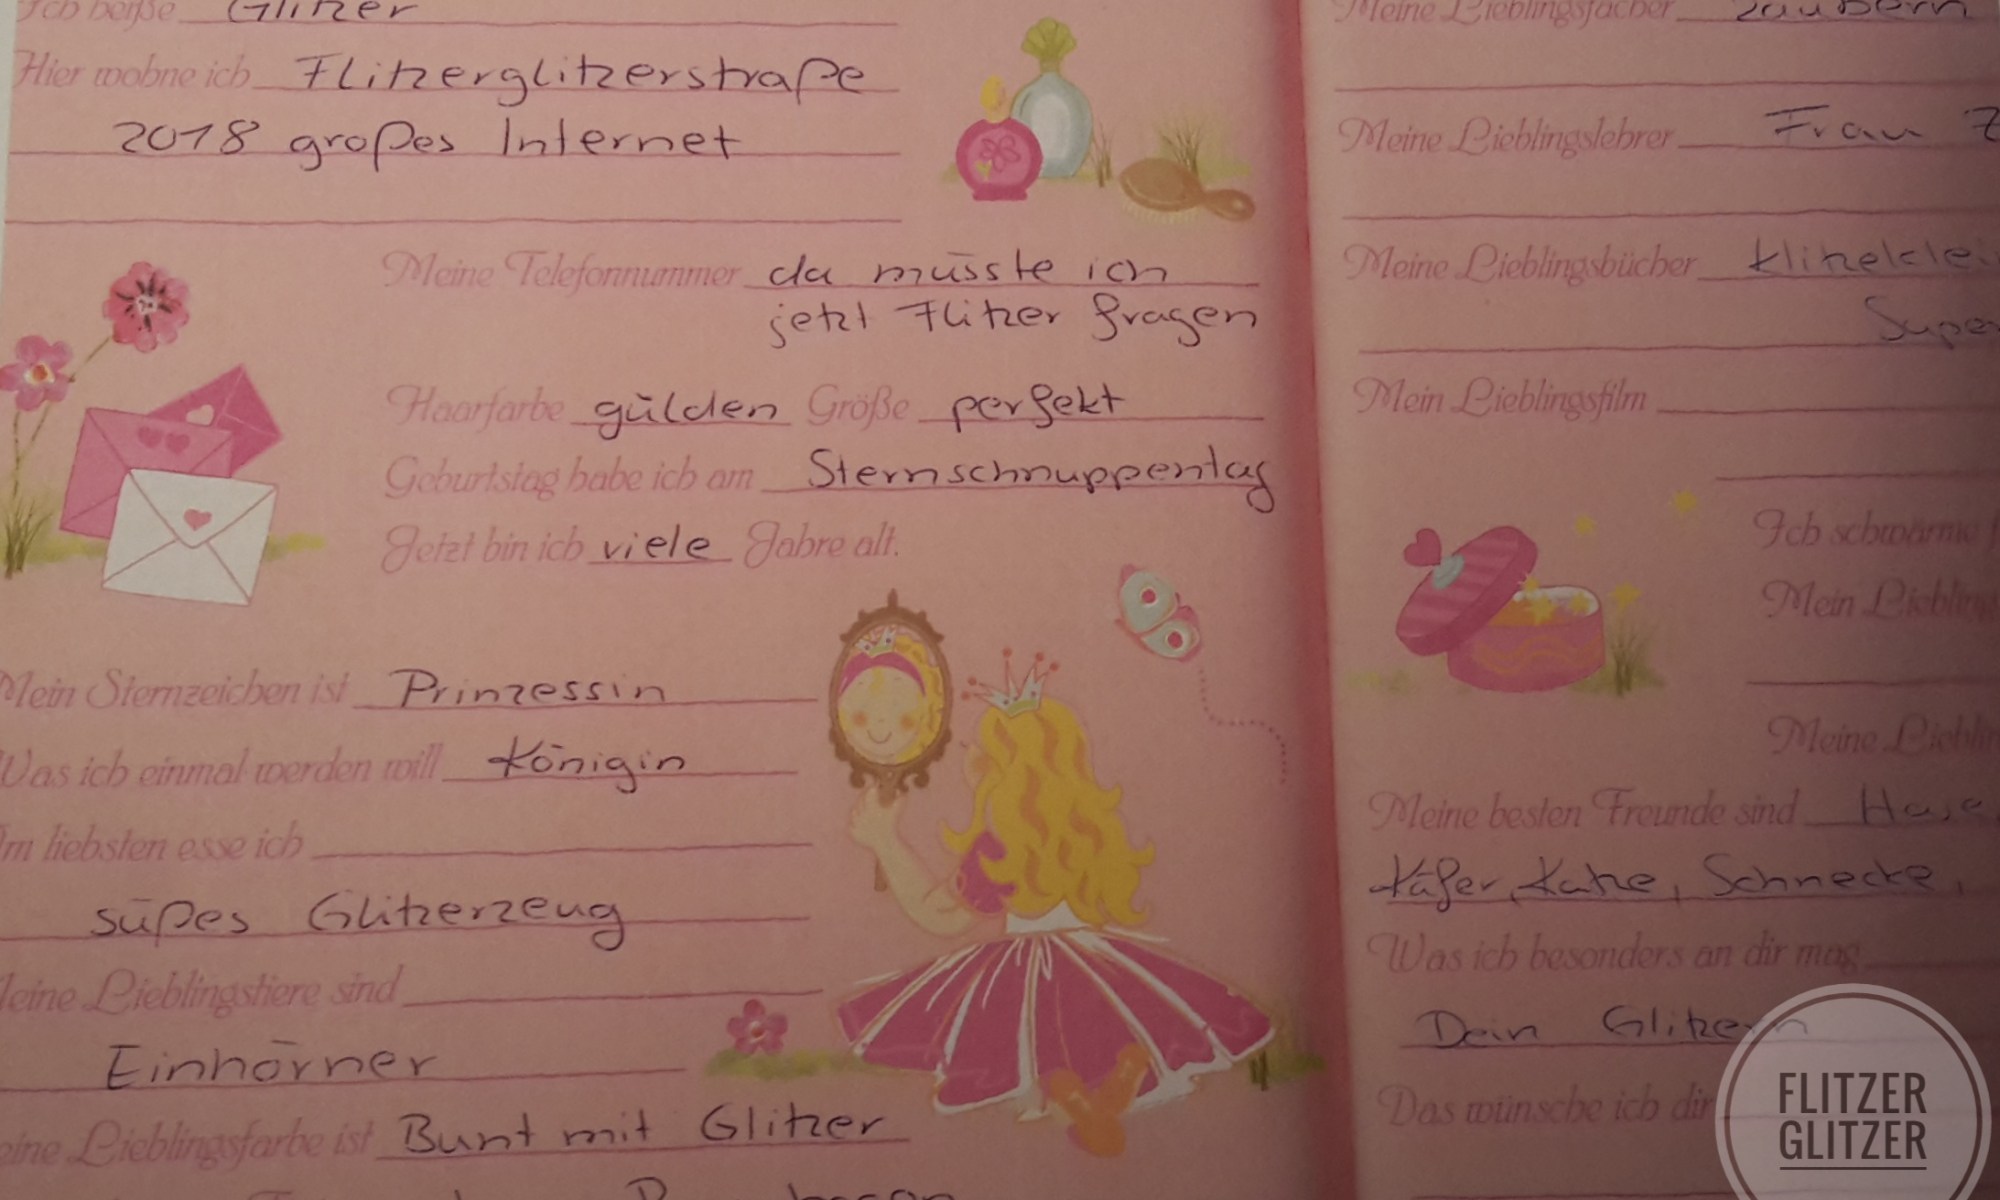 Ich heiße Glitzer
Hier wohne ich Flitzerglitzerstraße
2018 großes Internet
Meine Telefonnummer da müsste ich
jetzt Flitzer fragen
Haarfarbe gülden Größe perfekt
Geburtstag habe ich am Sternschnuppentag
Jetzt bin ich viele Jahre alt.
Mein Sternzeichen ist Prinzessin
Was ich einmal werden will Königin
Am liebsten esse ich
süßes Glitzerzeug
Meine Lieblingstiere sind
Einhörner
Meine Lieblingsfarbe ist Bunt mit Glitzer
Meine Lieblingsfächer zaubern
Meine Lieblingslehrer Frau Z
Meine Lieblingsbücher klitzeklei
Super
Mein Lieblingsfilm
Ich schwärme f
Mein Liebling
Meine Liebli
Meine besten Freunde sind Hase,
Käfer, Katze, Schnecke,
Was ich besonders an dir mag
Dein Glitzern
Das wünsche ich dir
FLITZER
GLITZER